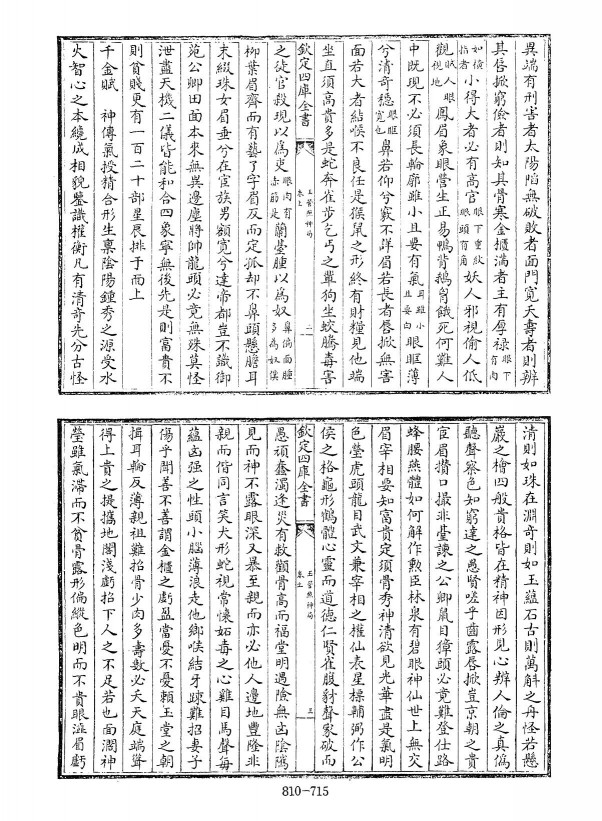 異端有刑害者太陽陷無破敗者面門寬夭壽者則辨
其唇掀窮儉者則知其骨寒金櫃滿者主有厚祿眼下有肉
如懷指者小得大者必有高官眼下重敖眼頭有角妖人邪視偷人低
觀賊人眼視地鳳眉象眼營生正易鴨背鵝胷餓死何難人
中既現不必須長輪廓雖小且要有氣耳雖小且要白眼眶薄
兮清奇穩眼眶寬也鼻若仰兮竅不詳眉若長者唇掀無害
面若大者結喉不良任是猴鼠之形終有財糧見他端
坐直須高貴多是蛇奔雀步乞丐之輩狗坐蛟騰毒害
欽定四庫全書
玉管照神局
卷上
二
之徒官殺現以為吏眼肉有赤筋是蘭臺腫以為奴鼻偏面腫多為奴僕
柳葉眉齊而有藝了字眉反而定孤却不鼻頭懸膽耳
末綴珠女眉垂兮在宦族男額寬兮達帝都豈不識御
苑公卿田面本來無異邊塵將帥龍頭必竟無殊莫怪
泄盡天機二儀皆能和合四象寧無後先是則富貴不
則貧賤更有一百二十部星辰排于而上
千金賦　神傳氣授精合形生禀陰陽鍾秀之源受水
火智心之本纔成相貌鑒識權衡凡有清奇先分古怪
清則如珠在淵奇則如玉藴石古則萬斛之舟怪若懸
巖之檜四般貴格皆在精神因形見心辨人倫之真偽
聽聲察色知窮達之愚賢嗟乎齒露唇掀豈京朝之貴
宦眉攢口撮非臺諫之公卿鼠目獐頭必竟難登仕路
蜂腰燕體如何解作勲臣林泉有碧眼神仙世上無交
眉宰相要知富貴定須骨秀神清欲見光華盡是氣明
色瑩虎頭龍目武文兼宰相之權仙表星標輔弼作公
侯之格龜形鶴體心靈而道德仁賢雀腹豺聲家破而
欽定四庫全書
玉管照神局
卷上
三
愚頑蠢濁逢災有救顴骨高而福堂明遇險無凶陰隲
見而神不露眼深又暴至親而亦必他人邊地豐隆非
親而偕同言笑犬形蛇視常懷妬毒之心雞目馬聲每
藴凶强之性頭小腦薄浪走他鄉喉結牙踈難招妻子
傷乎聞善不善謂金櫃之虧盈當憂不憂頼玉堂之朝
揖耳輪反薄親祖難招骨少肉多壽數必夭天庭端聳
得上貴之提攜地閣淺虧招下人之不足若也面濶神
瑩雖氣滯而不貧骨露形偏縱色明而不貴眼溢眉虧
810-715